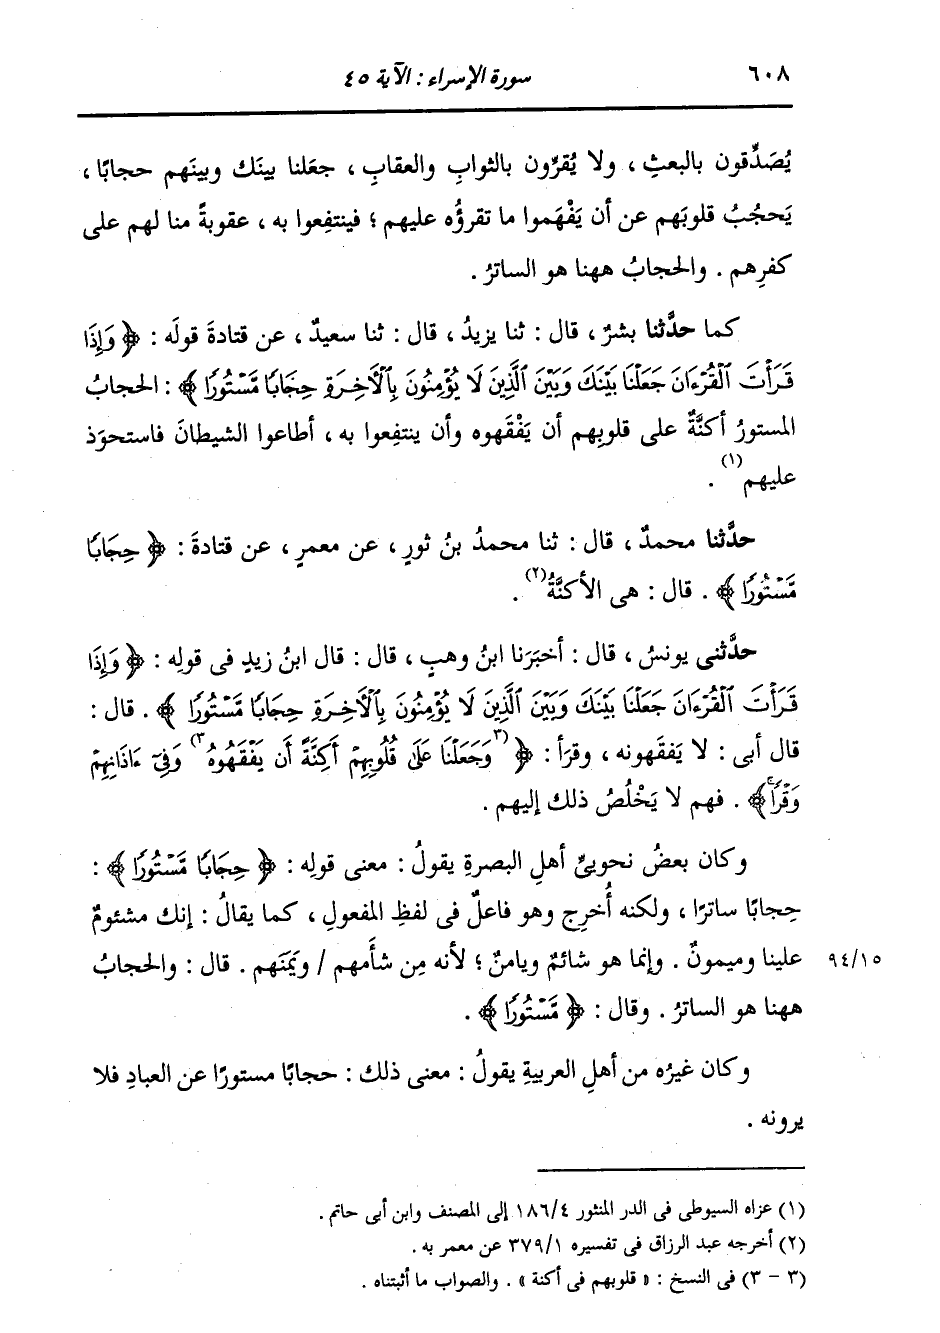 ٦٠٨ سورة الإسراء : الآية ٤٥
يُصَدِّقون بالبعثِ ، ولا يُقرُّون بالثوابِ والعقابِ ، جعَلنا بينَك وبينَهم حجابًا ،
يَحجُبُ قلوبَهم عن أن يَفْهَموا ما تقرؤُه عليهم ؛ فينتفِعوا به ، عقوبةً منا لهم على
كفرِهم . والحجابُ ههنا هو الساترُ .
كما حدَّثنا بشرٌ ، قال : ثنا يزيدُ ، قال : ثنا سعيدٌ ، عن قتادةَ قولَه : ﴿ وَإِذَا
قَرَأْتَ ٱلْقُرْءَانَ جَعَلْنَا بَيْنَكَ وَبَيْنَ ٱلَّذِينَ لَا يُؤْمِنُونَ بِٱلْأَخِرَةِ حِجَابًا مَّسْتُورًا ﴾ : الحجابُ
المستورُ أكنَّةٌ على قلوبِهم أن يَفْقَهوه وأن ينتفِعوا به ، أطاعوا الشيطانَ فاستحوَذ
عليهم (١) .
حدَّثنا محمدٌ ، قال : ثنا محمدُ بنُ ثورٍ ، عن معمرٍ ، عن قتادةَ : ﴿ حِجَابًا
مَّسْتُورًا ﴾ . قال : هى الأكنَّةُ (٢) .
حدَّثنى يونسُ ، قال : أخبَرَنا ابنُ وهبٍ ، قال : قال ابنُ زيدٍ فى قولِه : ﴿ وَإِذَا
قَرَأْتَ ٱلْقُرْءَانَ جَعَلْنَا بَيْنَكَ وَبَيْنَ ٱلَّذِينَ لَا يُؤْمِنُونَ بِٱلْأَخِرَةِ حِجَابًا مَّسْتُورًا ﴾ . قال :
قال أبى : لا يَفقَهونه ، وقرَأ : ﴿ (٣ وَجَعَلْنَا عَلَىٰ قُلُوبِهِمْ أَكِنَّةً أَن يَفْقَهُوهُ ٣) وَفِىٓ ءَاذَانِهِمْ
وَقْرًاۚ ﴾ . فهم لا يَخْلُصُ ذلك إليهم .
وكان بعضُ نحويىِّ أهلِ البصرةِ يقولُ : معنى قولِه : ﴿ حِجَابًا مَّسْتُورًا ﴾ :
حِجابًا ساترًا ، ولكنه أُخرِج وهو فاعلٌ فى لفظِ المفعولِ ، كما يقالُ : إنك مشئومٌ
علينا وميمونٌ . وإنما هو شائمٌ ويامنٌ ؛ لأنه مِن شأَمهم / ويَمَنَهم . قال : والحجابُ ٩٤/١٥
ههنا هو الساترُ . وقال : ﴿ مَّسْتُورًا ﴾ .
وكان غيرُه من أهلِ العربيةِ يقولُ : معنى ذلك : حجابًا مستورًا عن العبادِ فلا
يرونه .
(١) عزاه السيوطى فى الدر المنثور ١٨٦/٤ إلى المصنف وابن أبى حاتم .
(٢) أخرجه عبد الرزاق فى تفسيره ٣٧٩/١ عن معمر به .
(٣ - ٣) فى النسخ : « قلوبهم فى أكنة » . والصواب ما أثبتناه .